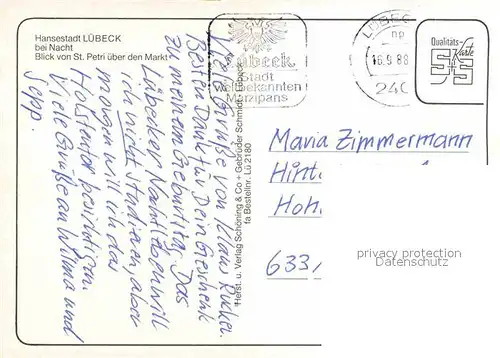 Hansestadt LÜBECK
bei Nacht
Blick von St. Petri über den Markt
Lübeck
Stadt
weltbekannten
Marzipans
LÜBEC
np
16.9.88
240
Qualitäts-
Karte
S+S
Viele Grüße von Klaus Rücker.
Besten Dank für Dein Geschenk
zu meinem Geburtstag. Das
Lübecker Nachtleben will
ich nicht studieren, aber
morgen will ich das
Holstentor besichtigen.
Viele Grüße an Wilma und
Sepp.
Herst. u. Verlag Schöning & Co + Gebrüder Schmidt, Lübeck
fa Bestellnr. Lü 2180
Maria Zimmermann
Hint.
Hoh.
633,
privacy protection
Datenschutz